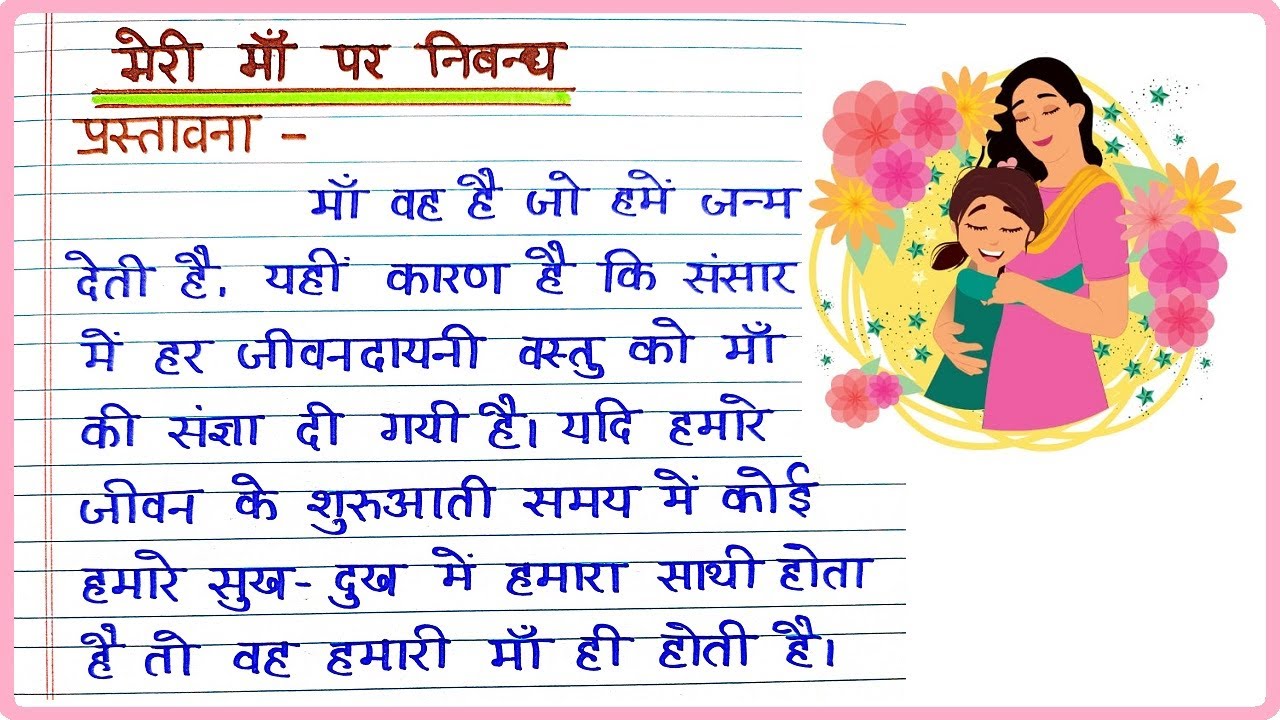 मेरी माँ पर निबन्ध
प्रस्तावना -
माँ वह है जो हमें जन्म
देती है, यहीं कारण है कि संसार
में हर जीवनदायनी वस्तु को माँ
की संज्ञा दी गयी है। यदि हमारे
जीवन के शुरुआती समय में कोई
हमारे सुख-दुख में हमारा साथी होता
है तो वह हमारी माँ ही होती है।